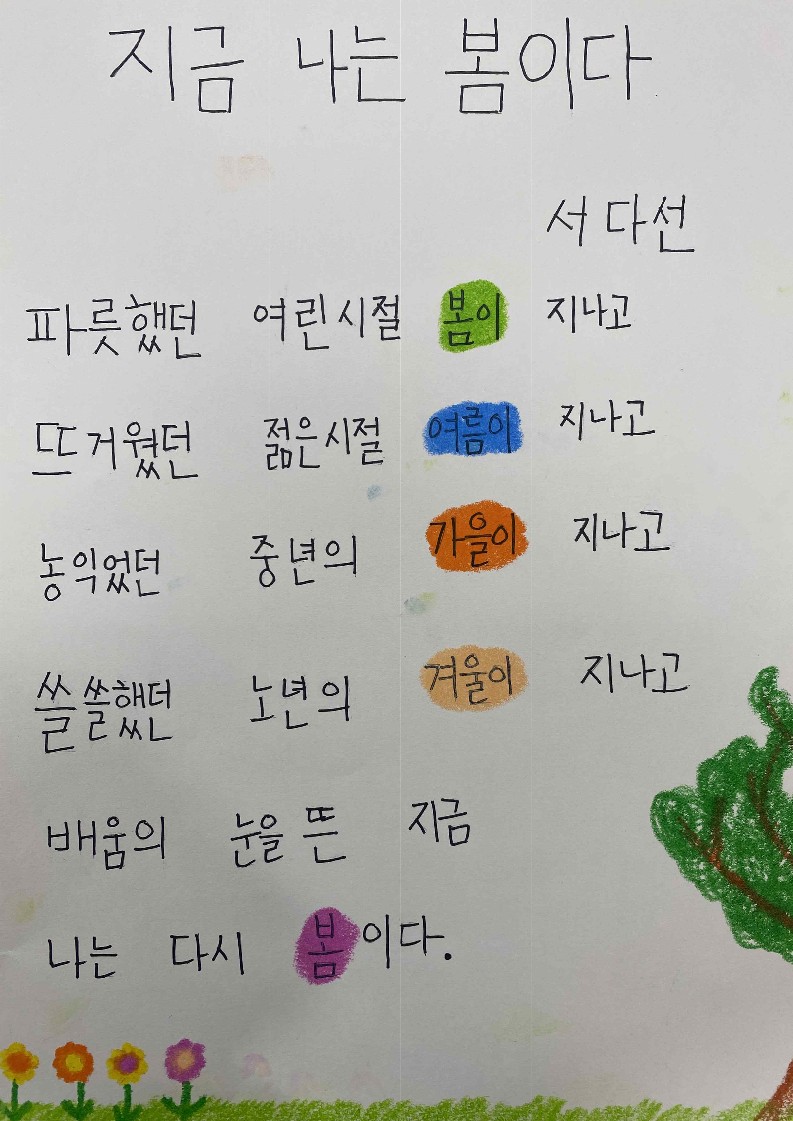 지금 나는 봄이다
서 다선
파릇했던 여린시절 봄이 지나고
뜨거웠던 젊은시절 여름이 지나고
농익었던 중년의 가을이 지나고
쓸쓸했던 노년의 겨울이 지나고
배움의 눈을 뜬 지금
나는 다시 봄이다.